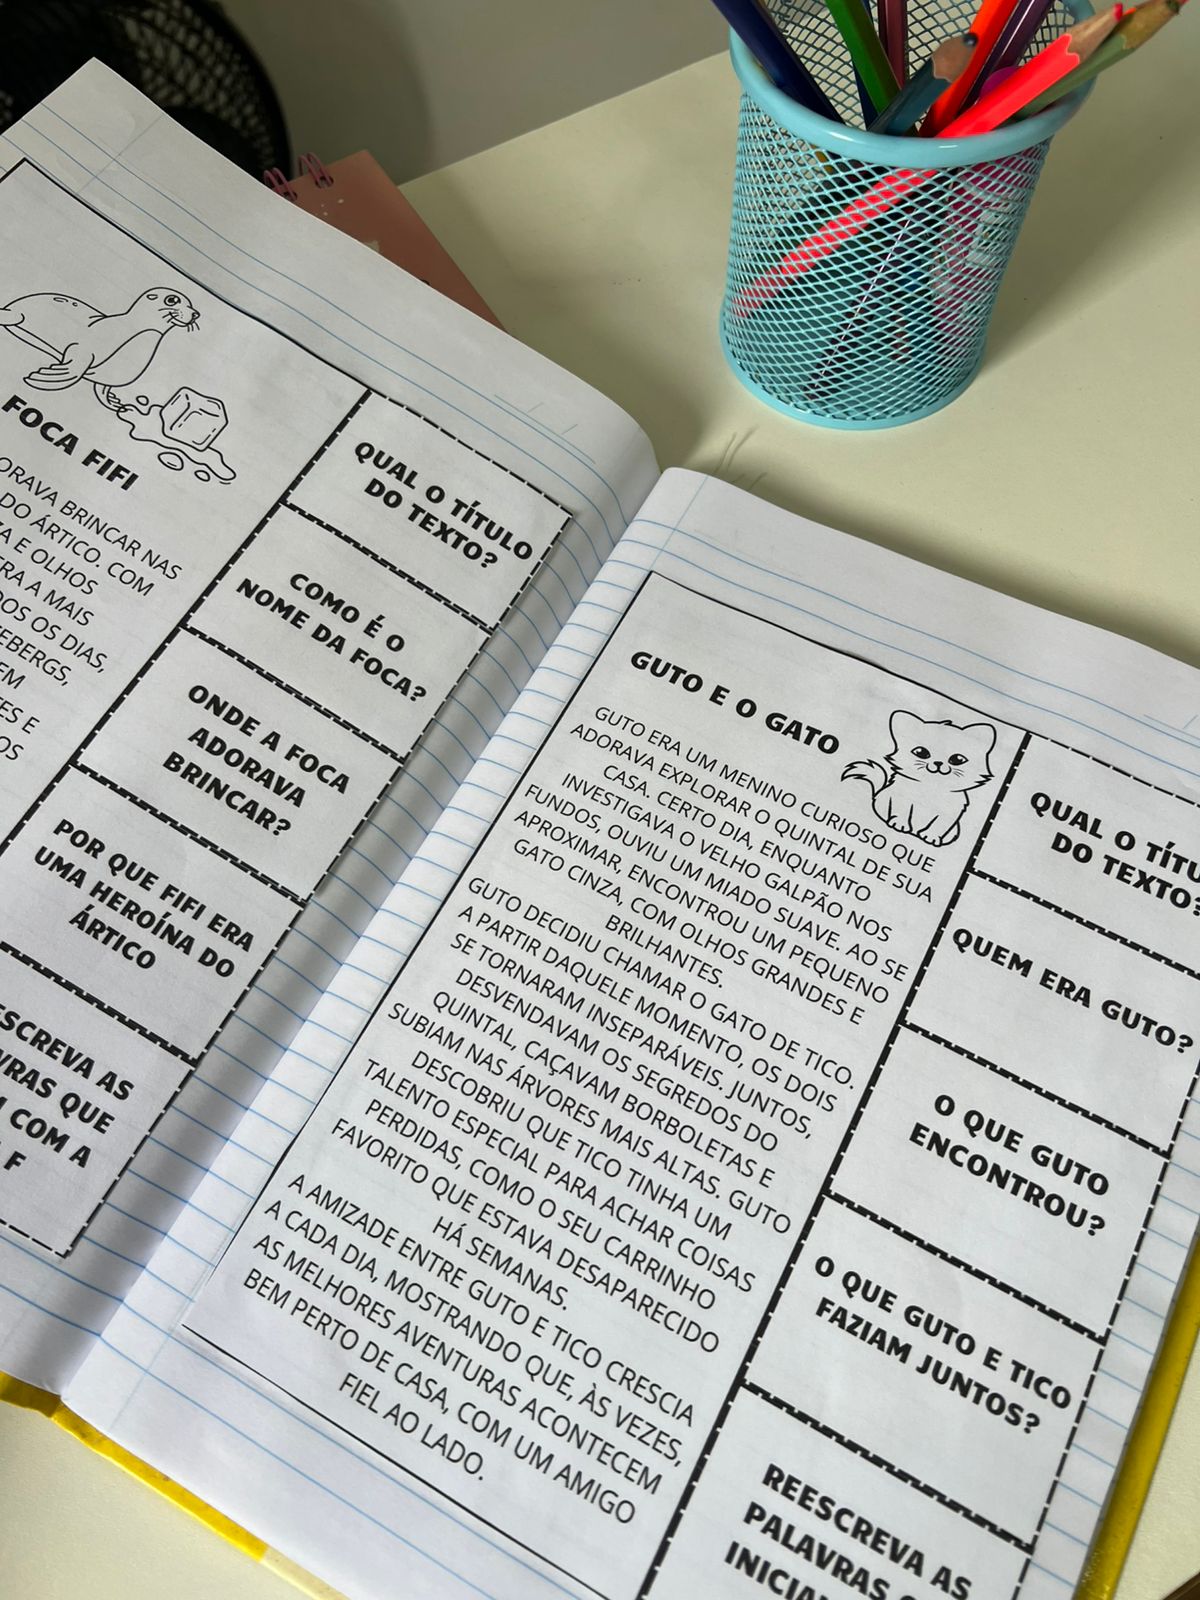 FOCA FIFI
BRINCAR NAS
DO ÁRTICO. COM
E OLHOS
ERA A MAIS
OS DIAS,
EM
E
QUAL O TÍTULO
DO TEXTO?
COMO É O
NOME DA FOCA?
ONDE A FOCA
ADORAVA
BRINCAR?
POR QUE FIFI ERA
UMA HEROÍNA DO
ÁRTICO
AS
QUE
COM A
F
GUTO E O GATO
GUTO ERA UM MENINO CURIOSO QUE
ADORAVA EXPLORAR O QUINTAL DE SUA
CASA. CERTO DIA, ENQUANTO
INVESTIGAVA O VELHO GALPÃO NOS
FUNDOS, OUVIU UM MIADO SUAVE. AO SE
APROXIMAR, ENCONTROU UM PEQUENO
GATO CINZA, COM OLHOS GRANDES E
BRILHANTES.
GUTO DECIDIU CHAMAR O GATO DE TICO.
A PARTIR DAQUELE MOMENTO, OS DOIS
SE TORNARAM INSEPARÁVEIS. JUNTOS,
DESVENDAVAM OS SEGREDOS DO
QUINTAL, CAÇAVAM BORBOLETAS E
SUBIAM NAS ÁRVORES MAIS ALTAS. GUTO
DESCOBRIU QUE TICO TINHA UM
TALENTO ESPECIAL PARA ACHAR COISAS
PERDIDAS, COMO O SEU CARRINHO
FAVORITO QUE ESTAVA DESAPARECIDO
HÁ SEMANAS.
A AMIZADE ENTRE GUTO E TICO CRESCIA
A CADA DIA, MOSTRANDO QUE, ÀS VEZES,
AS MELHORES AVENTURAS ACONTECEM
BEM PERTO DE CASA, COM UM AMIGO
FIEL AO LADO.
QUAL O
DO TEXTO?
QUEM ERA GUTO?
O QUE GUTO
ENCONTROU?
O QUE GUTO E TICO
FAZIAM JUNTOS?
REESCREVA AS
PALAVRAS